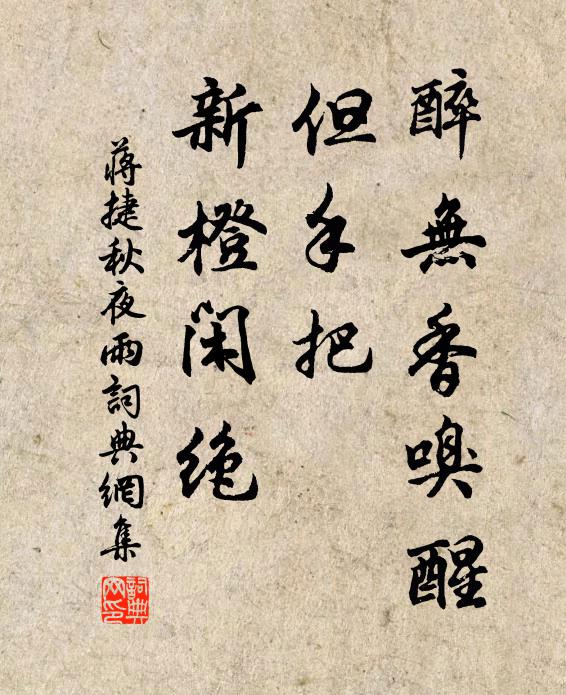 醉無香嗅醒
但手把
新橙閑絶
蔣捷秋夜雨詞典網集
詞典
网印